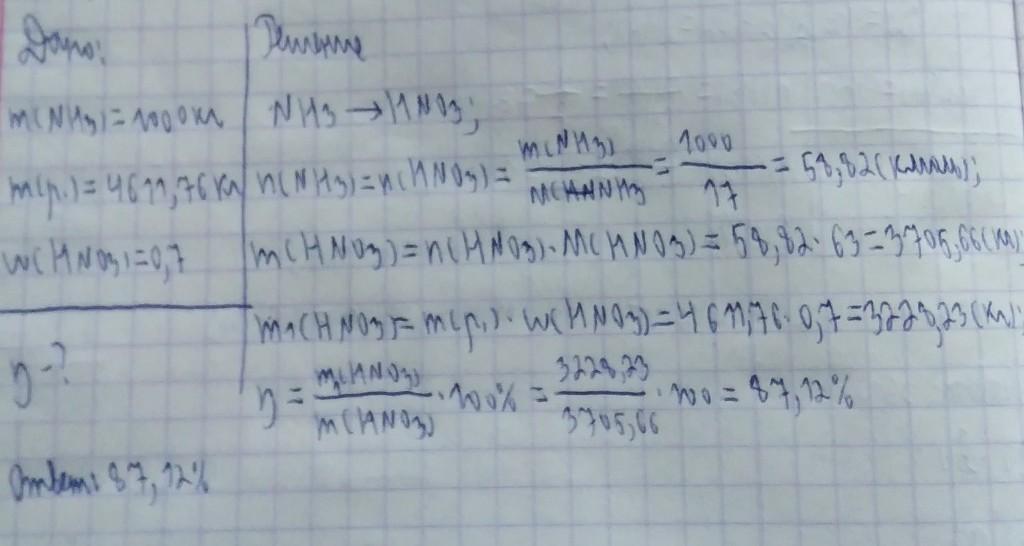 Дано:
m(NH3)=1000кг
m(р.)=4611,76кг
w(HNO3)=0,7
η-?
Решение
NH3→HNO3;
n(NH3)=n(HNO3)= m(NH3) / M(NH3 = 1000 / 17 = 58,82(кмоль);
m(HNO3)=n(HNO3)·M(HNO3)=58,82·63=3705,66(кг);
m1(HNO3)=m(р.)·w(HNO3)=4611,76·0,7=3228,23(кг);
η= m1(HNO3) / m(HNO3) ·100%= 3228,23 / 3705,66 ·100=87,12%
Ответ: 87,12%